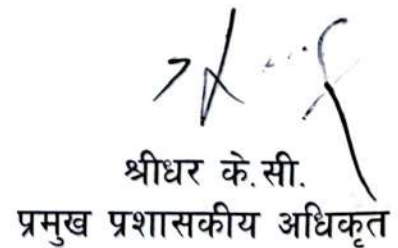 श्रीधर के.सी.
प्रमुख प्रशासकीय अधिकृत